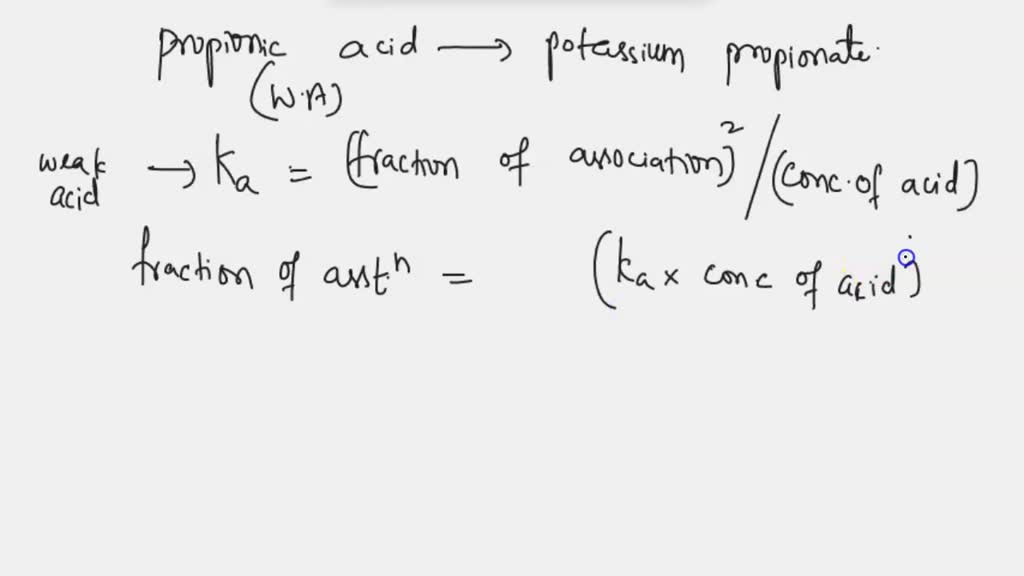 propionic acid → potassium propionate.
(W.A)
weak acid → Ka = (fraction of association)² / (conc. of acid)
fraction of asstⁿ = (Ka × conc of acid)